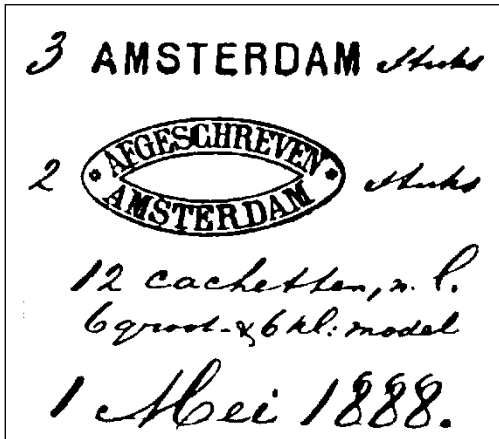 3 AMSTERDAM stuks
2 AFGESCHREVEN AMSTERDAM stuks
12 cachetten, n. l.
6 groot- & 6 kl: model
1 Mei 1888.